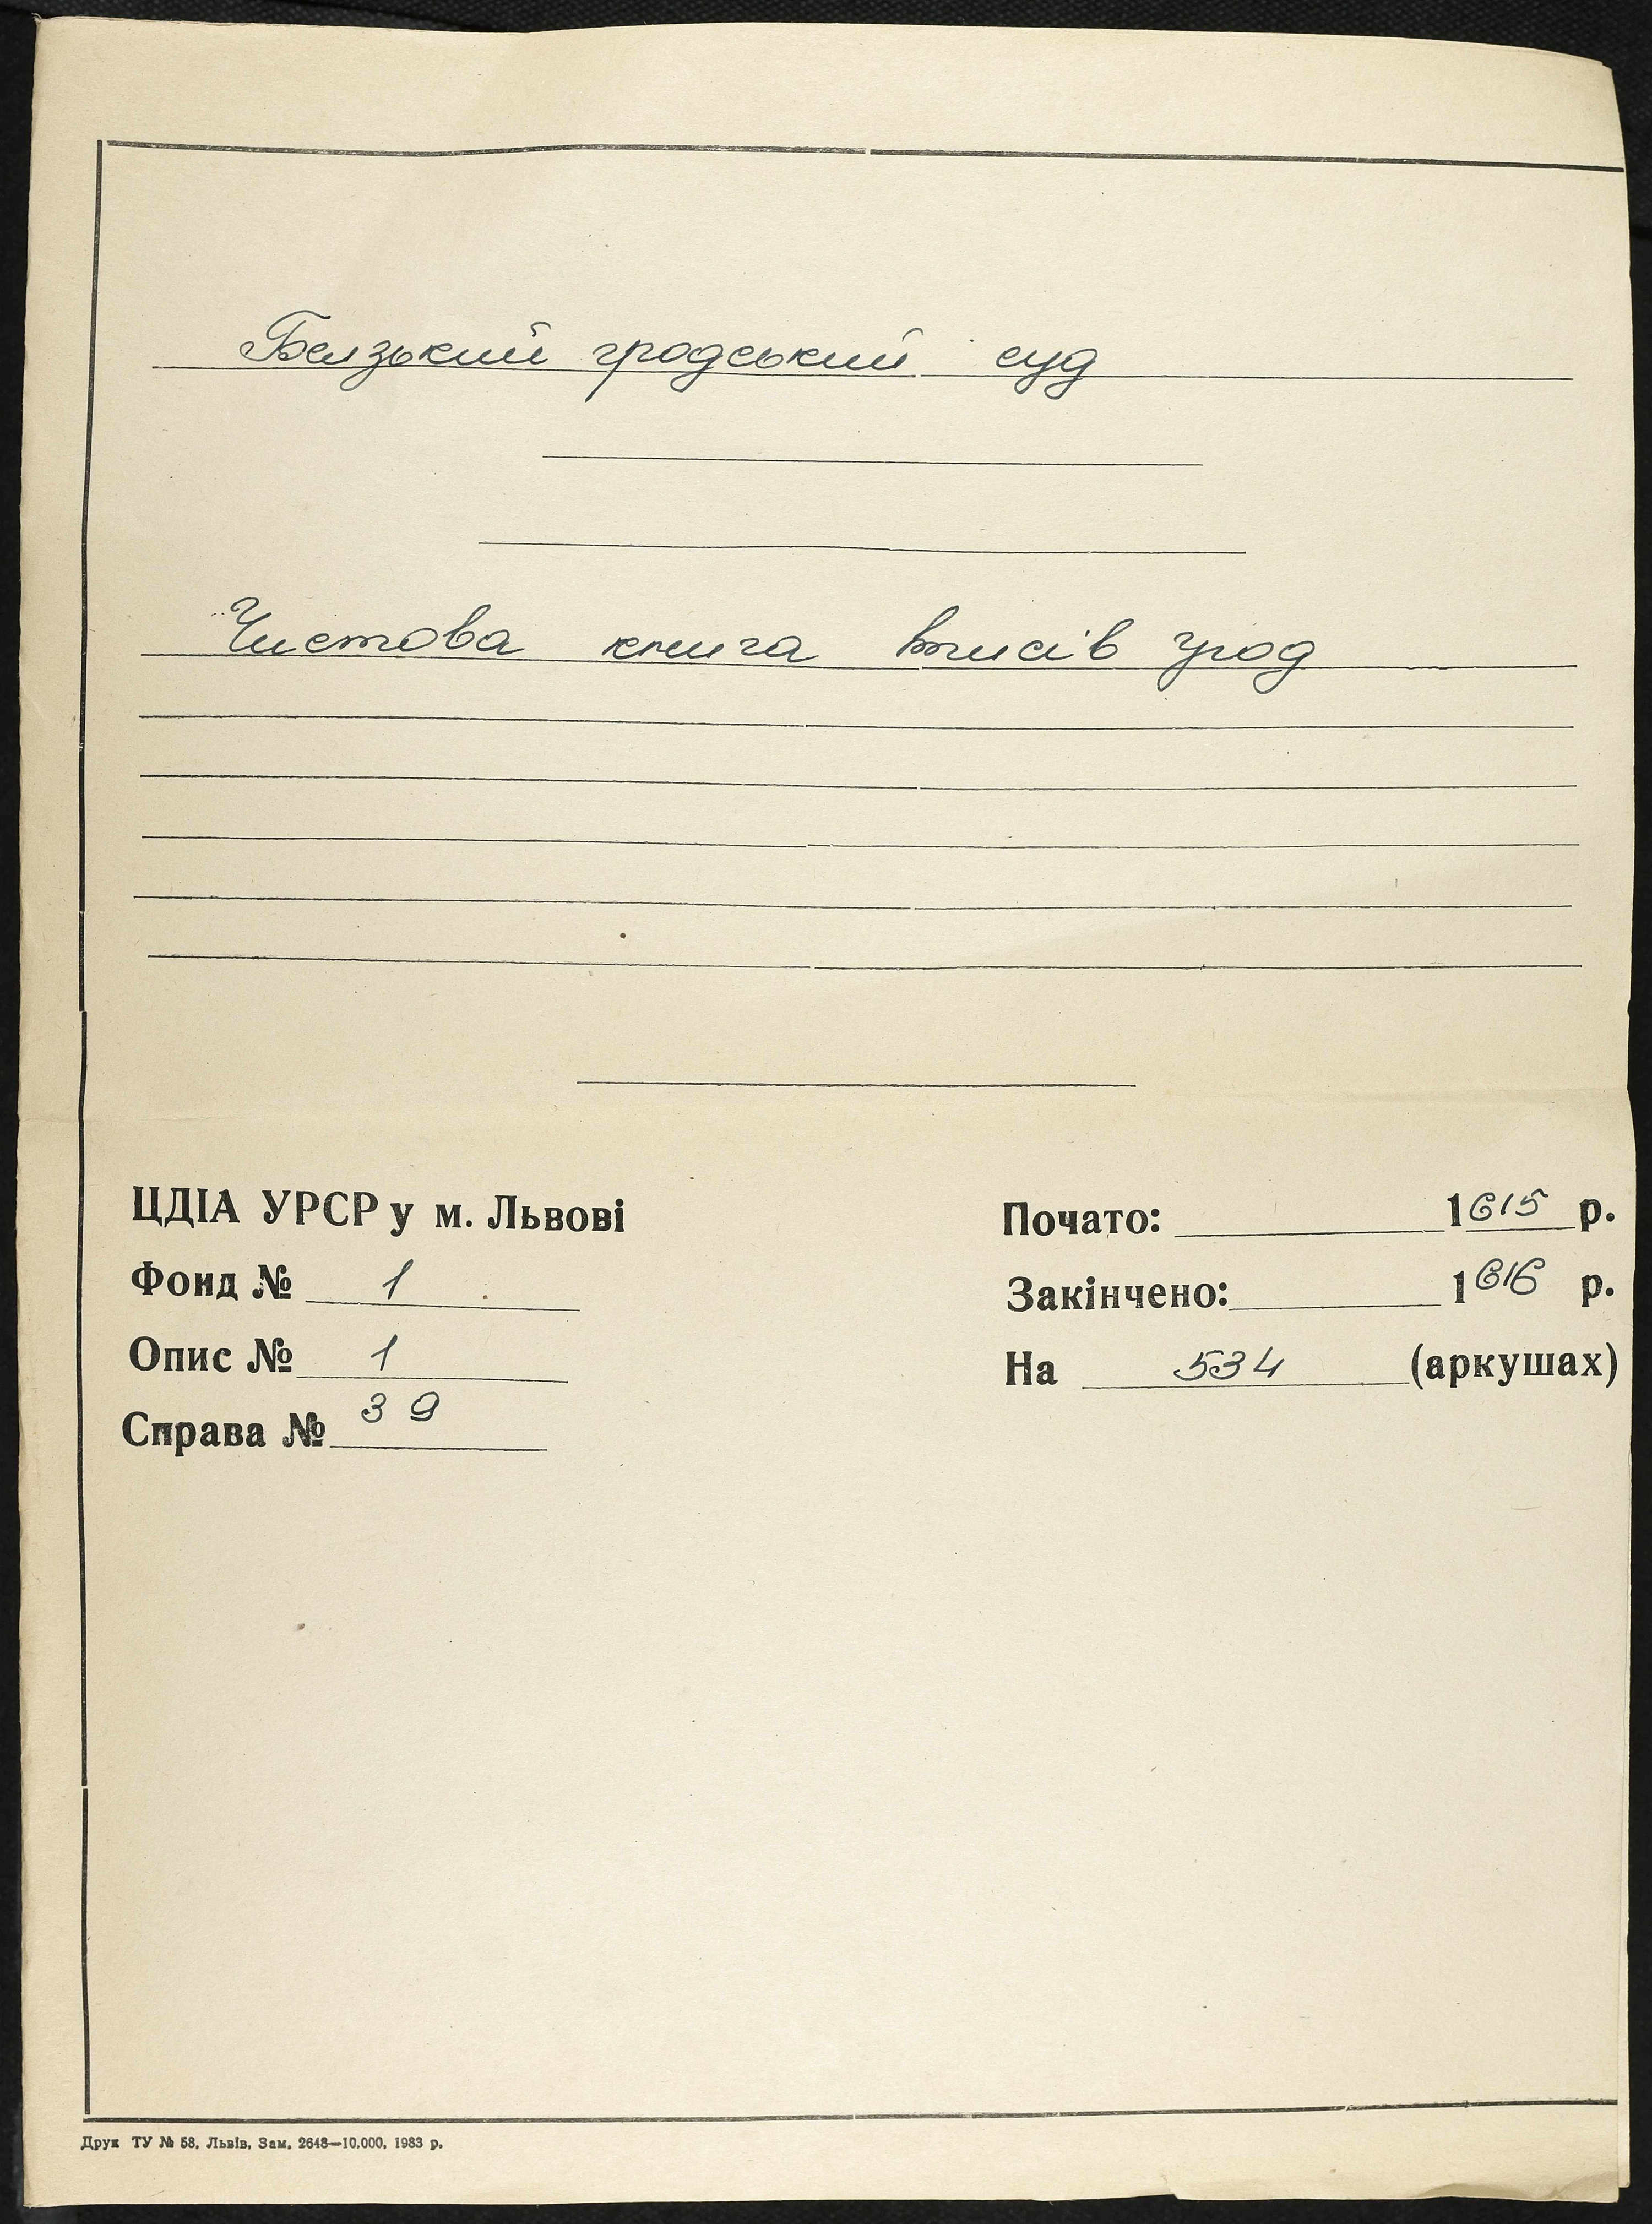 Белзький гродський суд
Чистова книга вписів угод
ЦДІА УРСР у м. Львові
Фонд № 1
Опис № 1
Справа № 39
Почато: 1615 р.
Закінчено: 1616 р.
На 534 (аркушах)
Друк ТУ № 58, Львів, Зам. 2648—10.000, 1983 р.